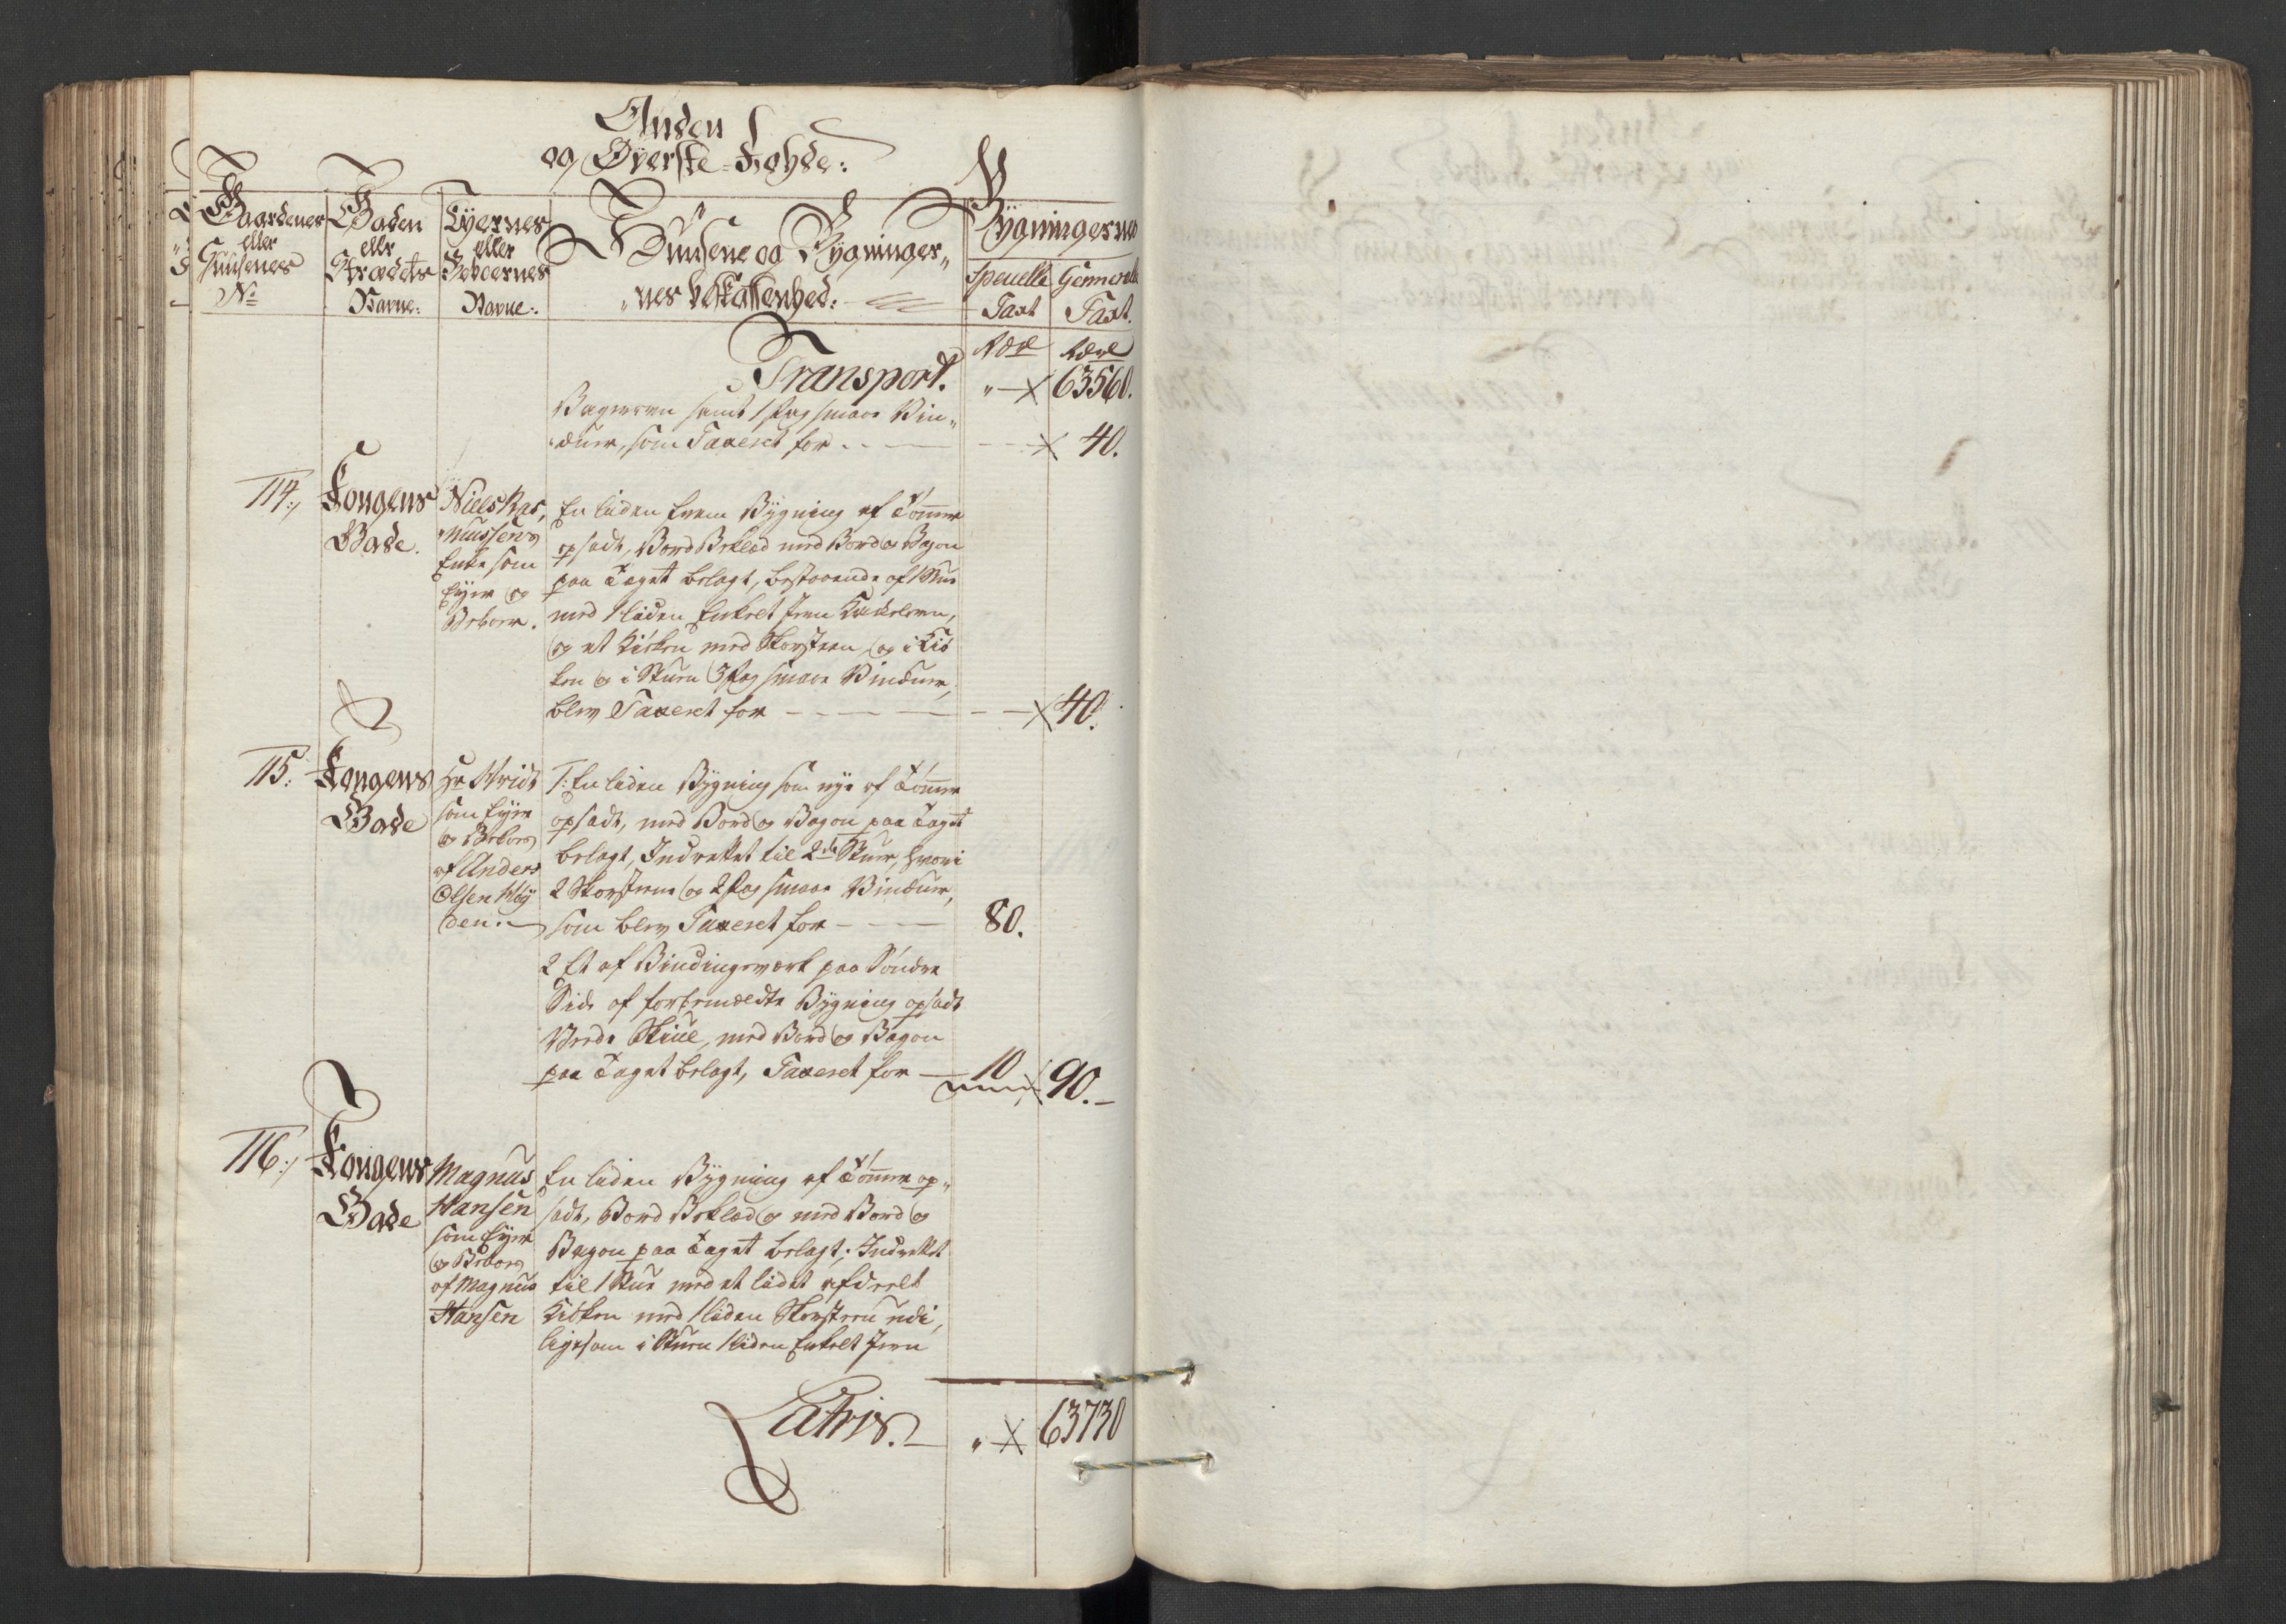 Anden
og Øyerste-Rohde:
Gaardenes
eller
Huusenes
No
Gaden
eller
Strædets
Navne:
Eyernes
eller
Beboernes
Navne:
Huusene og Bygninger-
nes beskaffenhed:
Bygningernes
Speuelle
Taxt
Generale
Taxt.
Rdr
Rdr
Transport. " 63560.
Bageroven samt 1 fag smaae Vin-
duer, som Taxeret for 40.
114:
Kongens
Gade.
Niels Ras-
mussens
Enke som
Eyer og
Beboer.
En liden frem Bygning af Tömmer
opsadt, Bord Beklæd med Bord og Vagon
paa Taget belagt, bestaaende af 1 Stue
med 1 liden Enkelt Jern Kakelovn,
og et Kiöken med Skorsteen og i Kiö
ken og i Stuen 3 fag smaae Vinduer,
blev Taxeret for 40.
115:
Kongens
Gade
Hr Wridt
som Eyer
og Beboes
af Anders
Olsen Höy
den.
1: En liden Bygning som nye af Tömmer
opsadt, med Bord og Vagon paa Taget
belagt, Indrettet til 2de Stuer, hvori
2 Skorsteene og 2 fag smaae Vinduer,
som blev Taxeret for 80.
2 Et af Bindingsverk paa Söndre
Side af forbemældte Bygning opsadt
Veede Skiul, med Bord og Vagon
paa Taget belagt, Taxeret for 10 90.
116:
Kongens
Gade
Magnus
Hansen
som Eyer
og Beboes
af Magnus
Hansen
En liden Bygning af Tömmer op-
sadt, Bord Beklæd og med Bord og
Vagon paa Taget belagt; Indrettet
til 1 Stue med et lidet afdeelt
Kiöken med 1 liden Skorsteen udi,
ligesom i Stuen 1 liden Enkelt Jern
Latris. " 63730